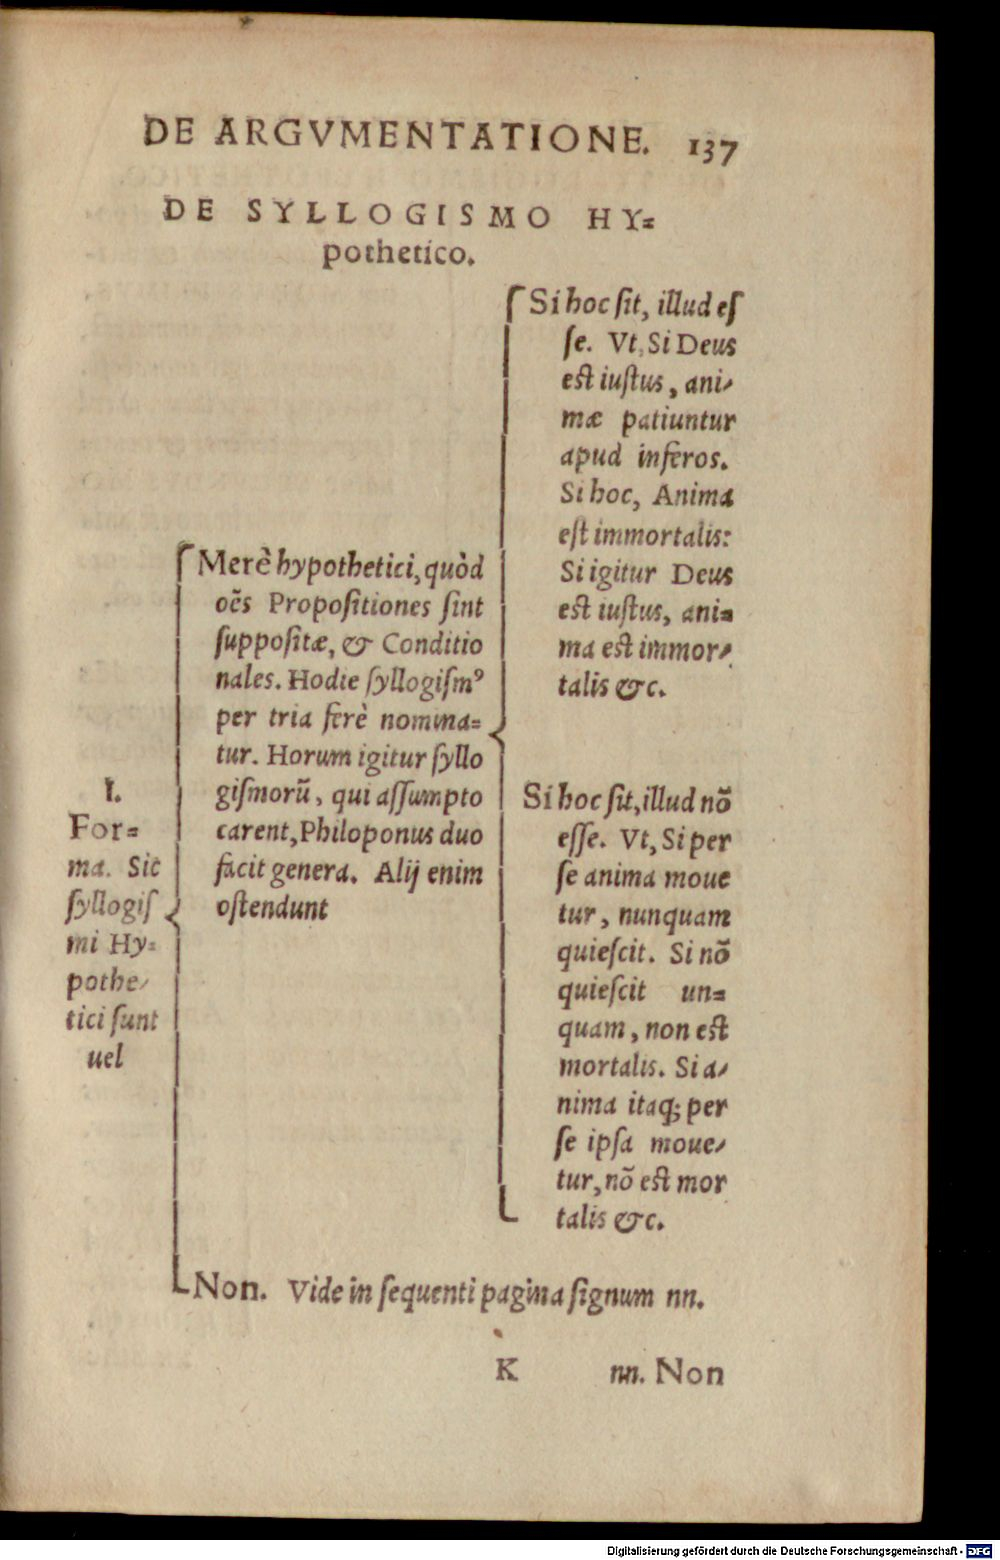 DE ARGVMENTATIONE. 137
DE SYLLOGISMO HY=
pothetico.
I.
For=
ma. Sic
ſyllogiſ
mi Hy=
pothe/
tici ſunt
uel
Merè hypothetici, quòd
oēs Propoſitiones ſint
ſuppoſitæ, & Conditio
nales. Hodie ſyllogiſmꝰ
per tria ferè nomina=
tur. Horum igitur ſyllo
giſmorū, qui aſſumpto
carent, Philoponus duo
facit genera. Alij enim
oſtendunt
Si hoc ſit, illud eſ
ſe. Vt, Si Deus
est iuſtus, ani/
mæ patiuntur
apud inferos.
Si hoc, Anima
eſt immortalis:
Si igitur Deus
est iuſtus, ani=
ma est immor/
talis &c.
Si hoc ſit, illud nō
eſſe. Vt, Si per
ſe anima moue
tur, nunquam
quieſcit. Si nō
quieſcit un=
quam, non est
mortalis. Si a/
nima itaq; per
ſe ipſa moue/
tur, nō est mor
talis &c.
Non. Vide in ſequenti pagina ſignum nn.
K nn. Non
Digitalisierung gefördert durch die Deutsche Forschungsgemeinschaft - DFG